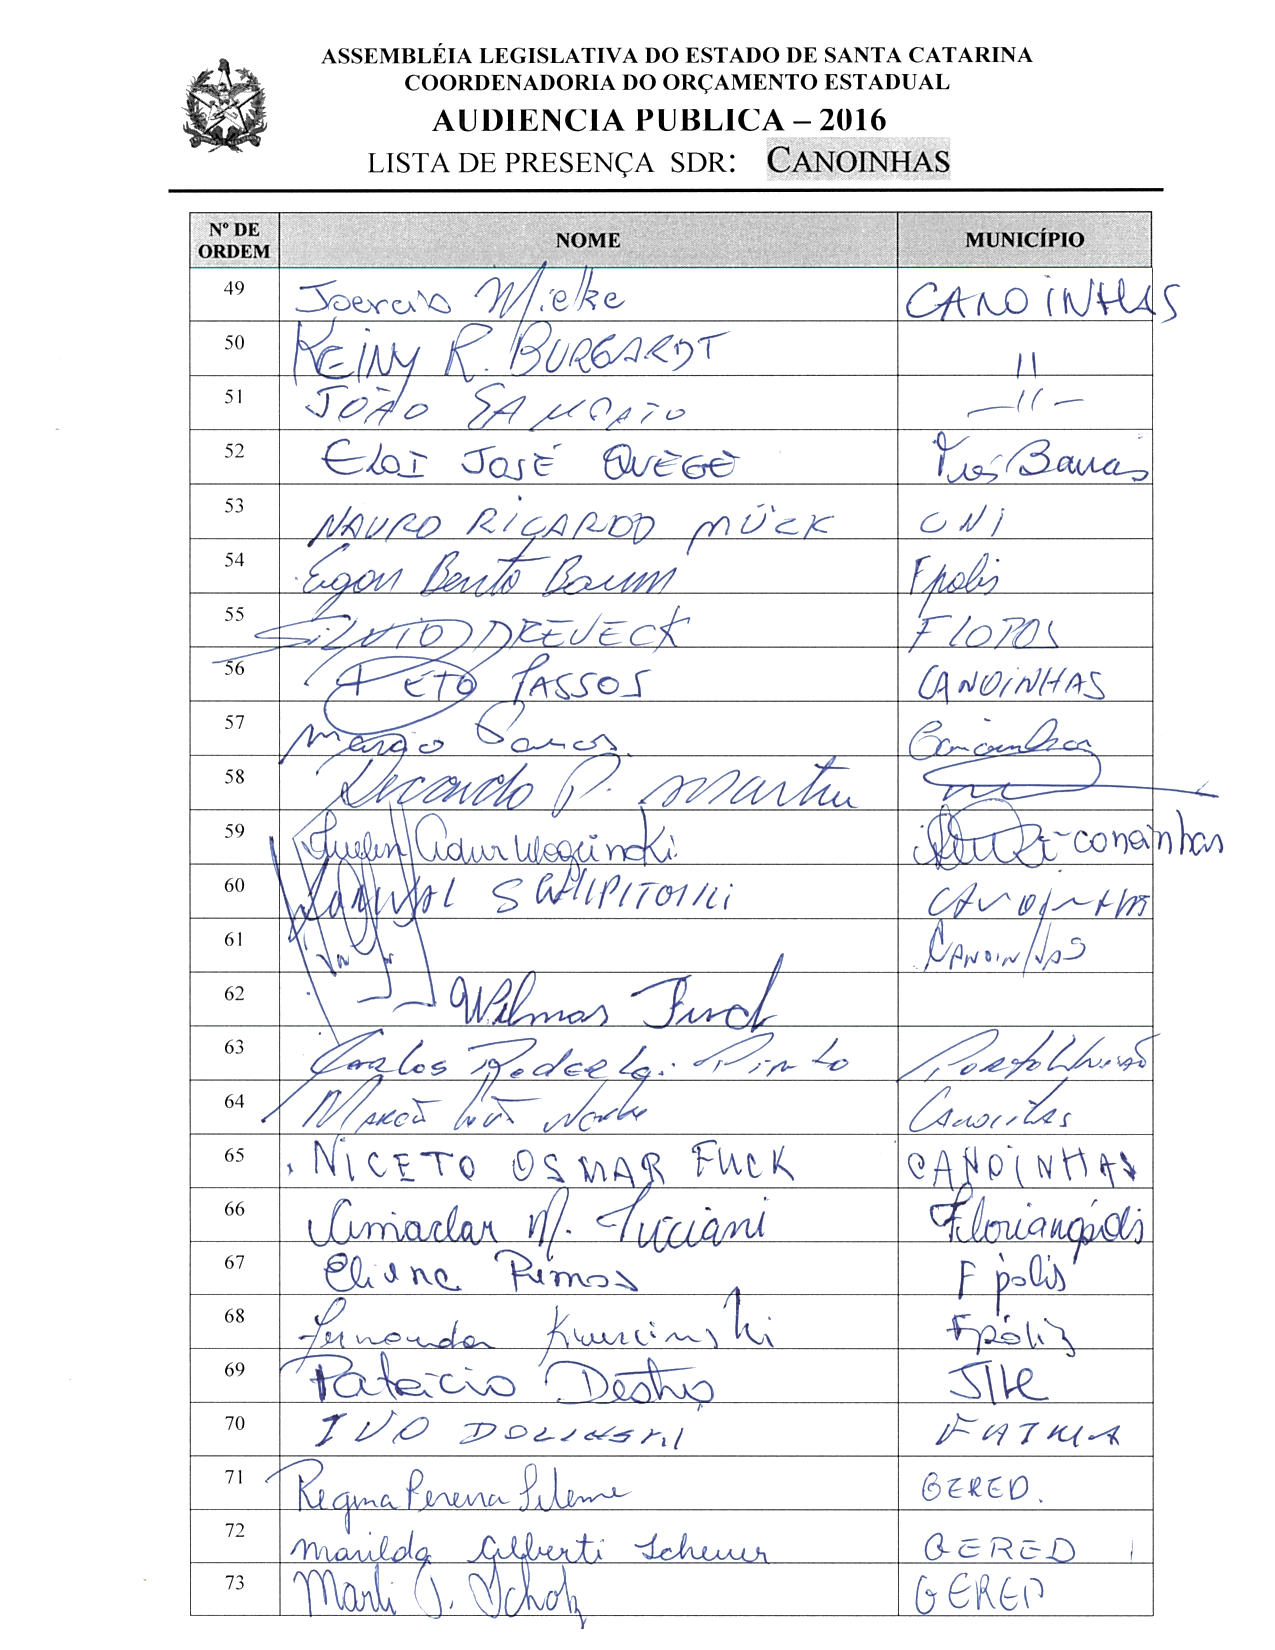 ASSEMBLÉIA LEGISLATIVA DO ESTADO DE SANTA CATARINA
COORDENADORIA DO ORÇAMENTO ESTADUAL
AUDIENCIA PUBLICA – 2016
LISTA DE PRESENÇA SDR: CANOINHAS
Nº DE ORDEM NOME MUNICÍPIO
49 Joercio Mielke CANOINHAS
50 KEINY R. BURGARDT 11
51 JOÃO SAMPAIO —11—
52 ELOI JOSÉ QUEGE Três Barras
53 NAURO RICARDO MÜCK CNI
54 Egon Bento Baum Fpolis
55 SILVIO DREVECK FLOPOS
56 BETO PASSOS CANOINHAS
57 Canoinhas
58 P.
59 canoinhas
60 CANOINHAS
61 CANOINHAS
62 Wilmar
63 Carlos Pinto Porto União
64 Canoinhas
65 NICETO OSMAR FUCK CANOINHAS
66 M. Luciani Florianópolis
67 Eliana Ramos Fpolis
68 Fernanda Kwurcinski Fpólis
69 Patricio Destro Jlle
70 IVO DOLINSKI FATMA
71 Regina Pereira Seleme GERED.
72 Marilda Gilberti Scheuer GERED
73 Marli J. Scholz GERED